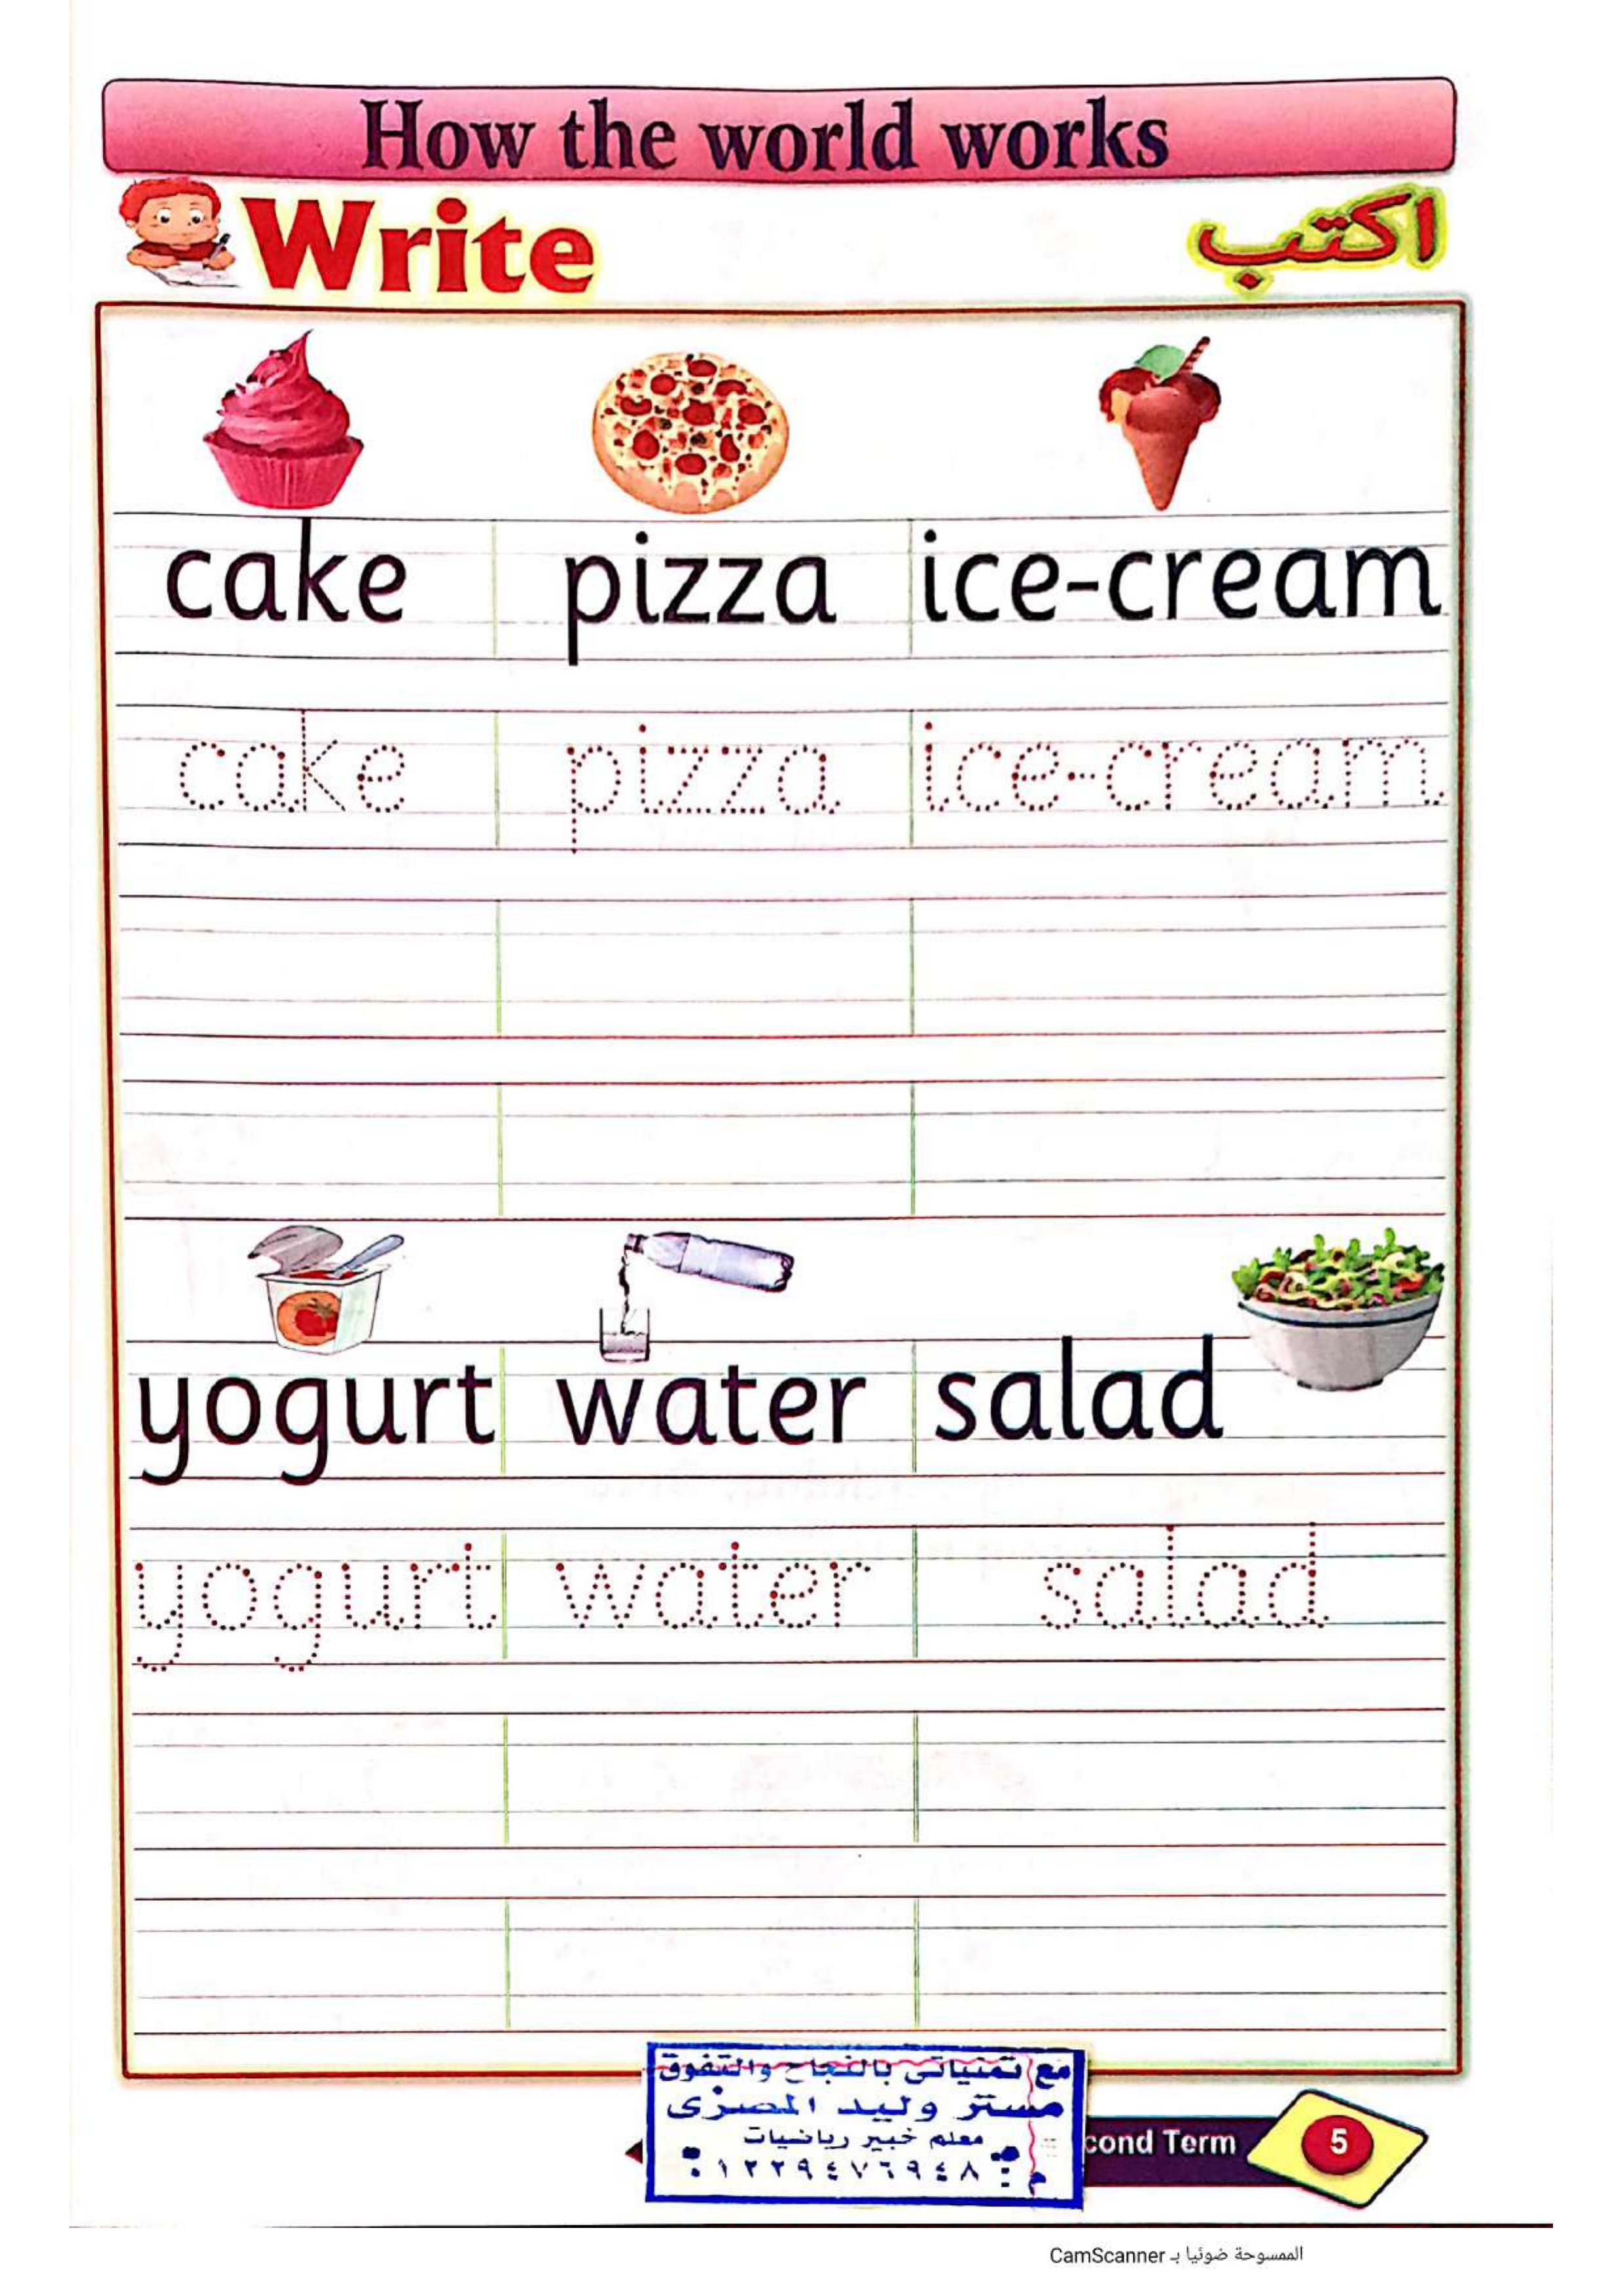 How the world works
Write
اكتب
cake pizza ice-cream
cake pizza ice-cream
yogurt water salad
yogurt water salad
مع تمنياتى بالنجاح والتفوق
مستر وليد المصرى
معلم خبير رياضيات
م : ٠١٢٢٩٤٧٦٩٤٨
cond Term
5
الممسوحة ضوئيا بـ CamScanner